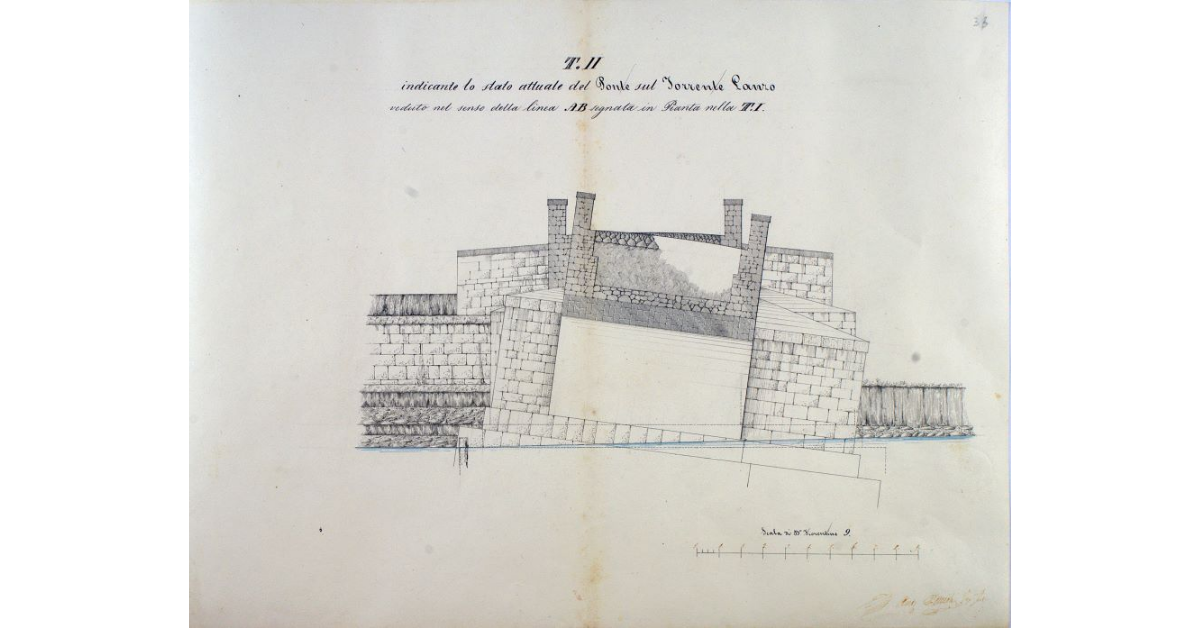 33
T. II
indicante lo stato attuale del Ponte sul Torrente Lanzo
veduto nel senso della linea AB segnata in Pianta nella T. I.
Scala di Bª Fiorentine 9.